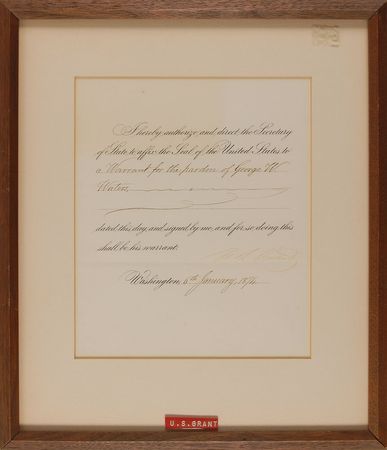 I hereby authorize and direct the Secretary
of State to affix the Seal of the United States to
a Warrant for the pardon of George W.
Waters,
dated this day, and signed by me, and for so doing this
shall be his warrant.
U. S. Grant
Washington, 6th January, 187
U.S. GRANT